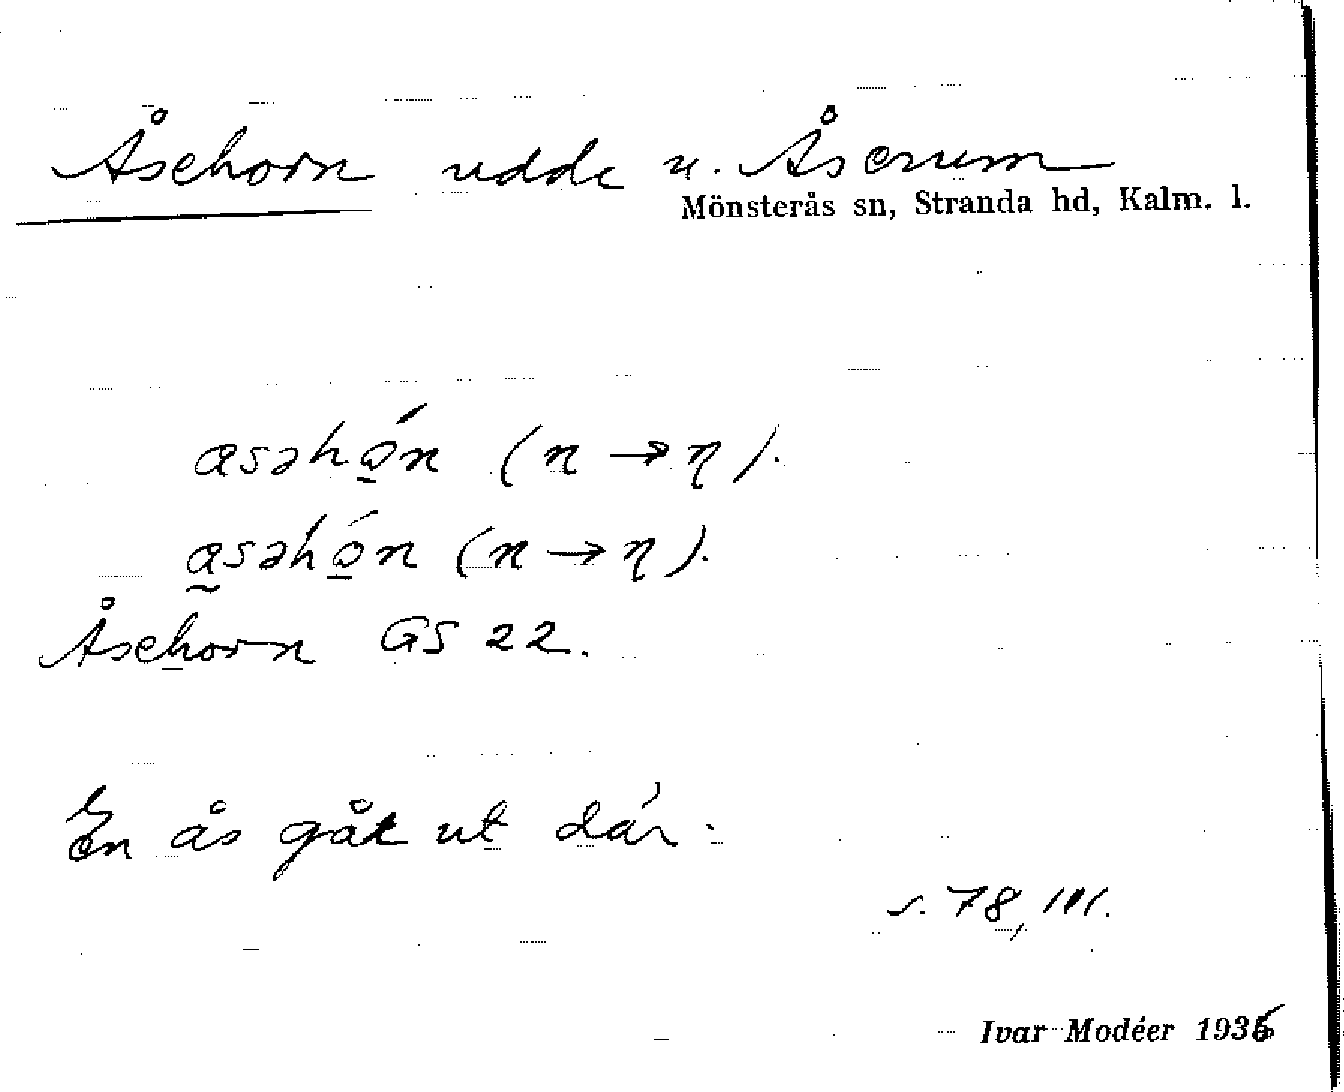 Åsehorn udde u. Åserum
Mönsterås sn, Stranda hd, Kalm. l.
asəhǫ́n (n → η).
a̰səhǫ́n (n → η).
Åsehorn GS 22.
En ås gåt ut där.
s. 78, 111.
Ivar Modéer 1936